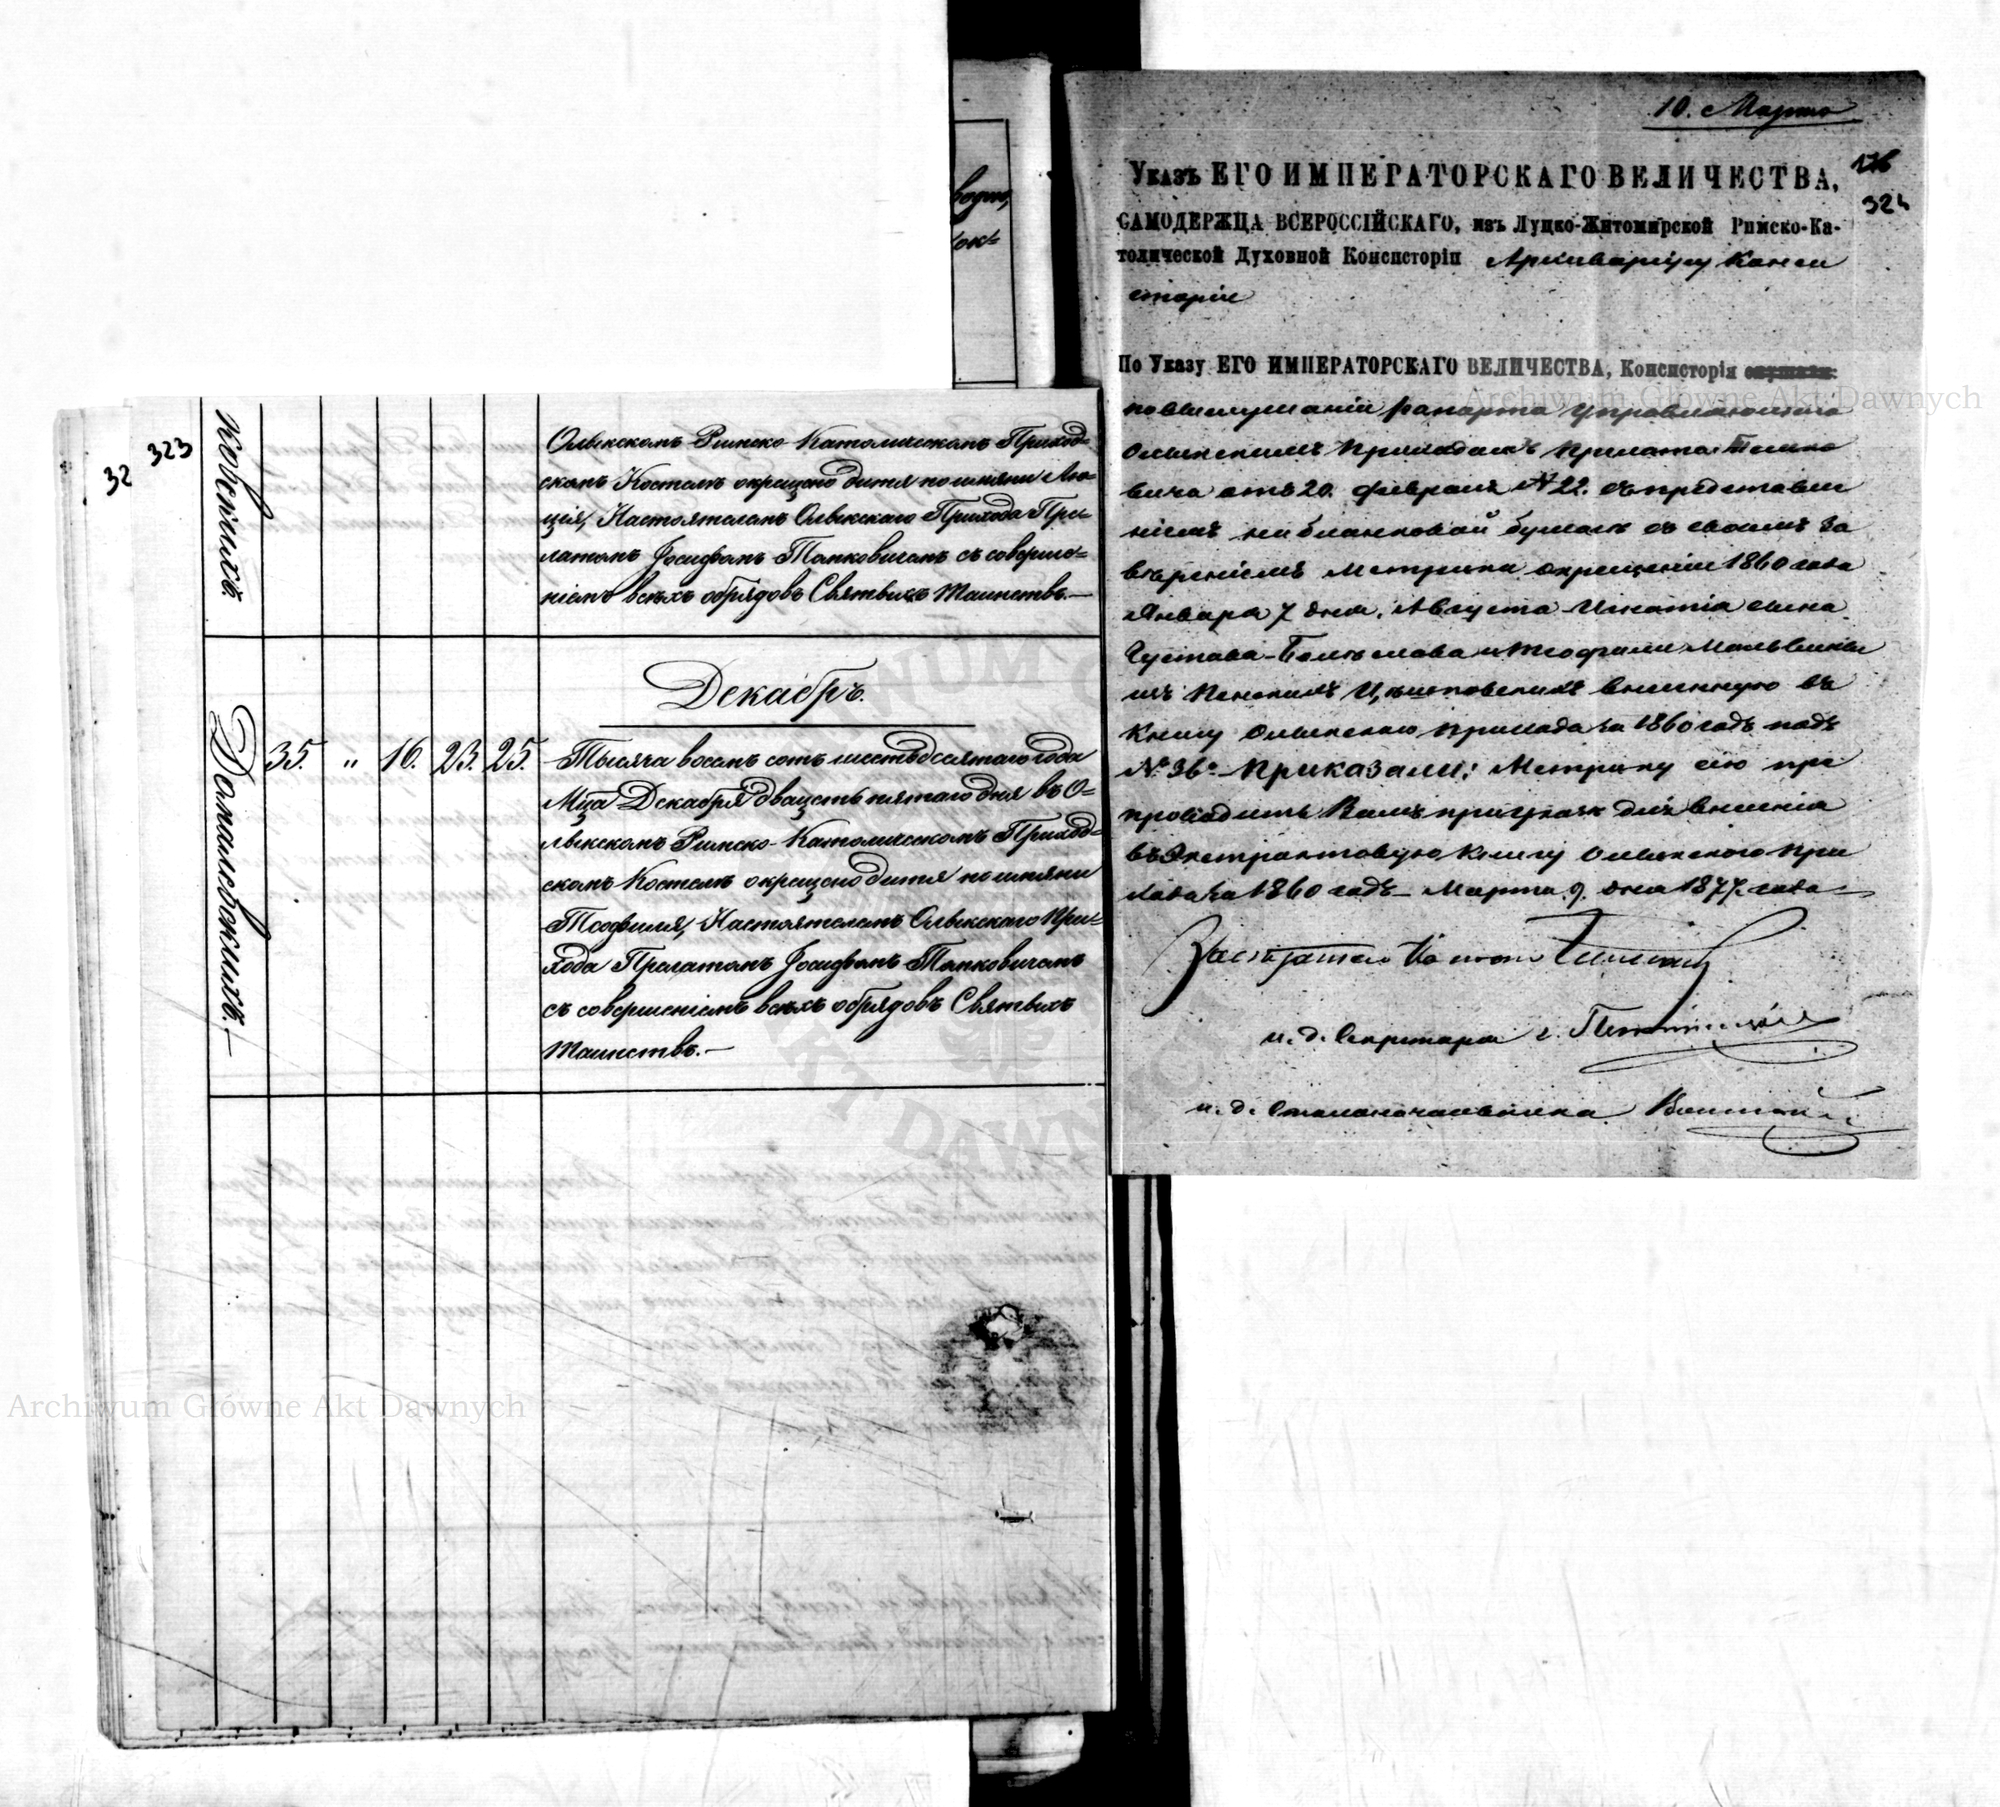 32
323
Олыкскомъ Римско-Католическомъ Приход-
скомъ Костелѣ окрещено дитя по имяни Лю-
ція, Настоятелемъ Олыкскаго Прихода Пре-
латомъ Іосифомъ Томковичемъ съ соверше-
ніемъ всѣхъ обрядовъ Святыхъ Таинствъ.—
Декабрь.
Доманевскихъ.—
35. " 16. 23. 25.
Тысяча восемъ сотъ шестьдесятаго года
Мца Декабря двацеть пятаго дня въ О-
лыкскомъ Римско-Католическомъ Приход-
скомъ Костелѣ окрещено дитя по имяни
Теофиля, Настоятелемъ Олыкскаго При-
хода Прелатомъ Іосифомъ Томковичемъ
съ совершеніемъ всѣхъ обрядовъ Святыхъ
Таинствъ.—
10. Марта
176
324
Указъ ЕГО ИМПЕРАТОРСКАГО ВЕЛИЧЕСТВА,
САМОДЕРЖЦА ВСЕРОССІЙСКАГО, изъ Луцко-Житомирской Римско-Ка-
толической Духовной Консисторіи Архиваріусу Конси
сторіи
По Указу ЕГО ИМПЕРАТОРСКАГО ВЕЛИЧЕСТВА, Консисторія слушали:
по выслушаніи рапорта Управляющаго
Олыкскимъ Приходомъ Прелата Томко
вича отъ 20. Февраля № 22. съ представле
ніемъ на бланковой бумагѣ съ своимъ за
вѣреніемъ Метрики окрещенія 1860 года
Января 7 дня, Августа Игнатія сына
Густава-Болеслава и Теофили
внесенную въ
Книгу Олыкскаго Прихода за 1860 годъ подъ
№ 36. Приказали: Метрику сію пре
проводить Вамъ при указѣ для внесенія
въ Экстрактовую Книгу Олыкскаго При
хода за 1860 годъ Марта 9. дня 1877. года
Засѣдатель
и. д. Секретаря
и. д. Столоначальника
Archiwum Główne Akt Dawnych
Archiwum Główne Akt Dawnych